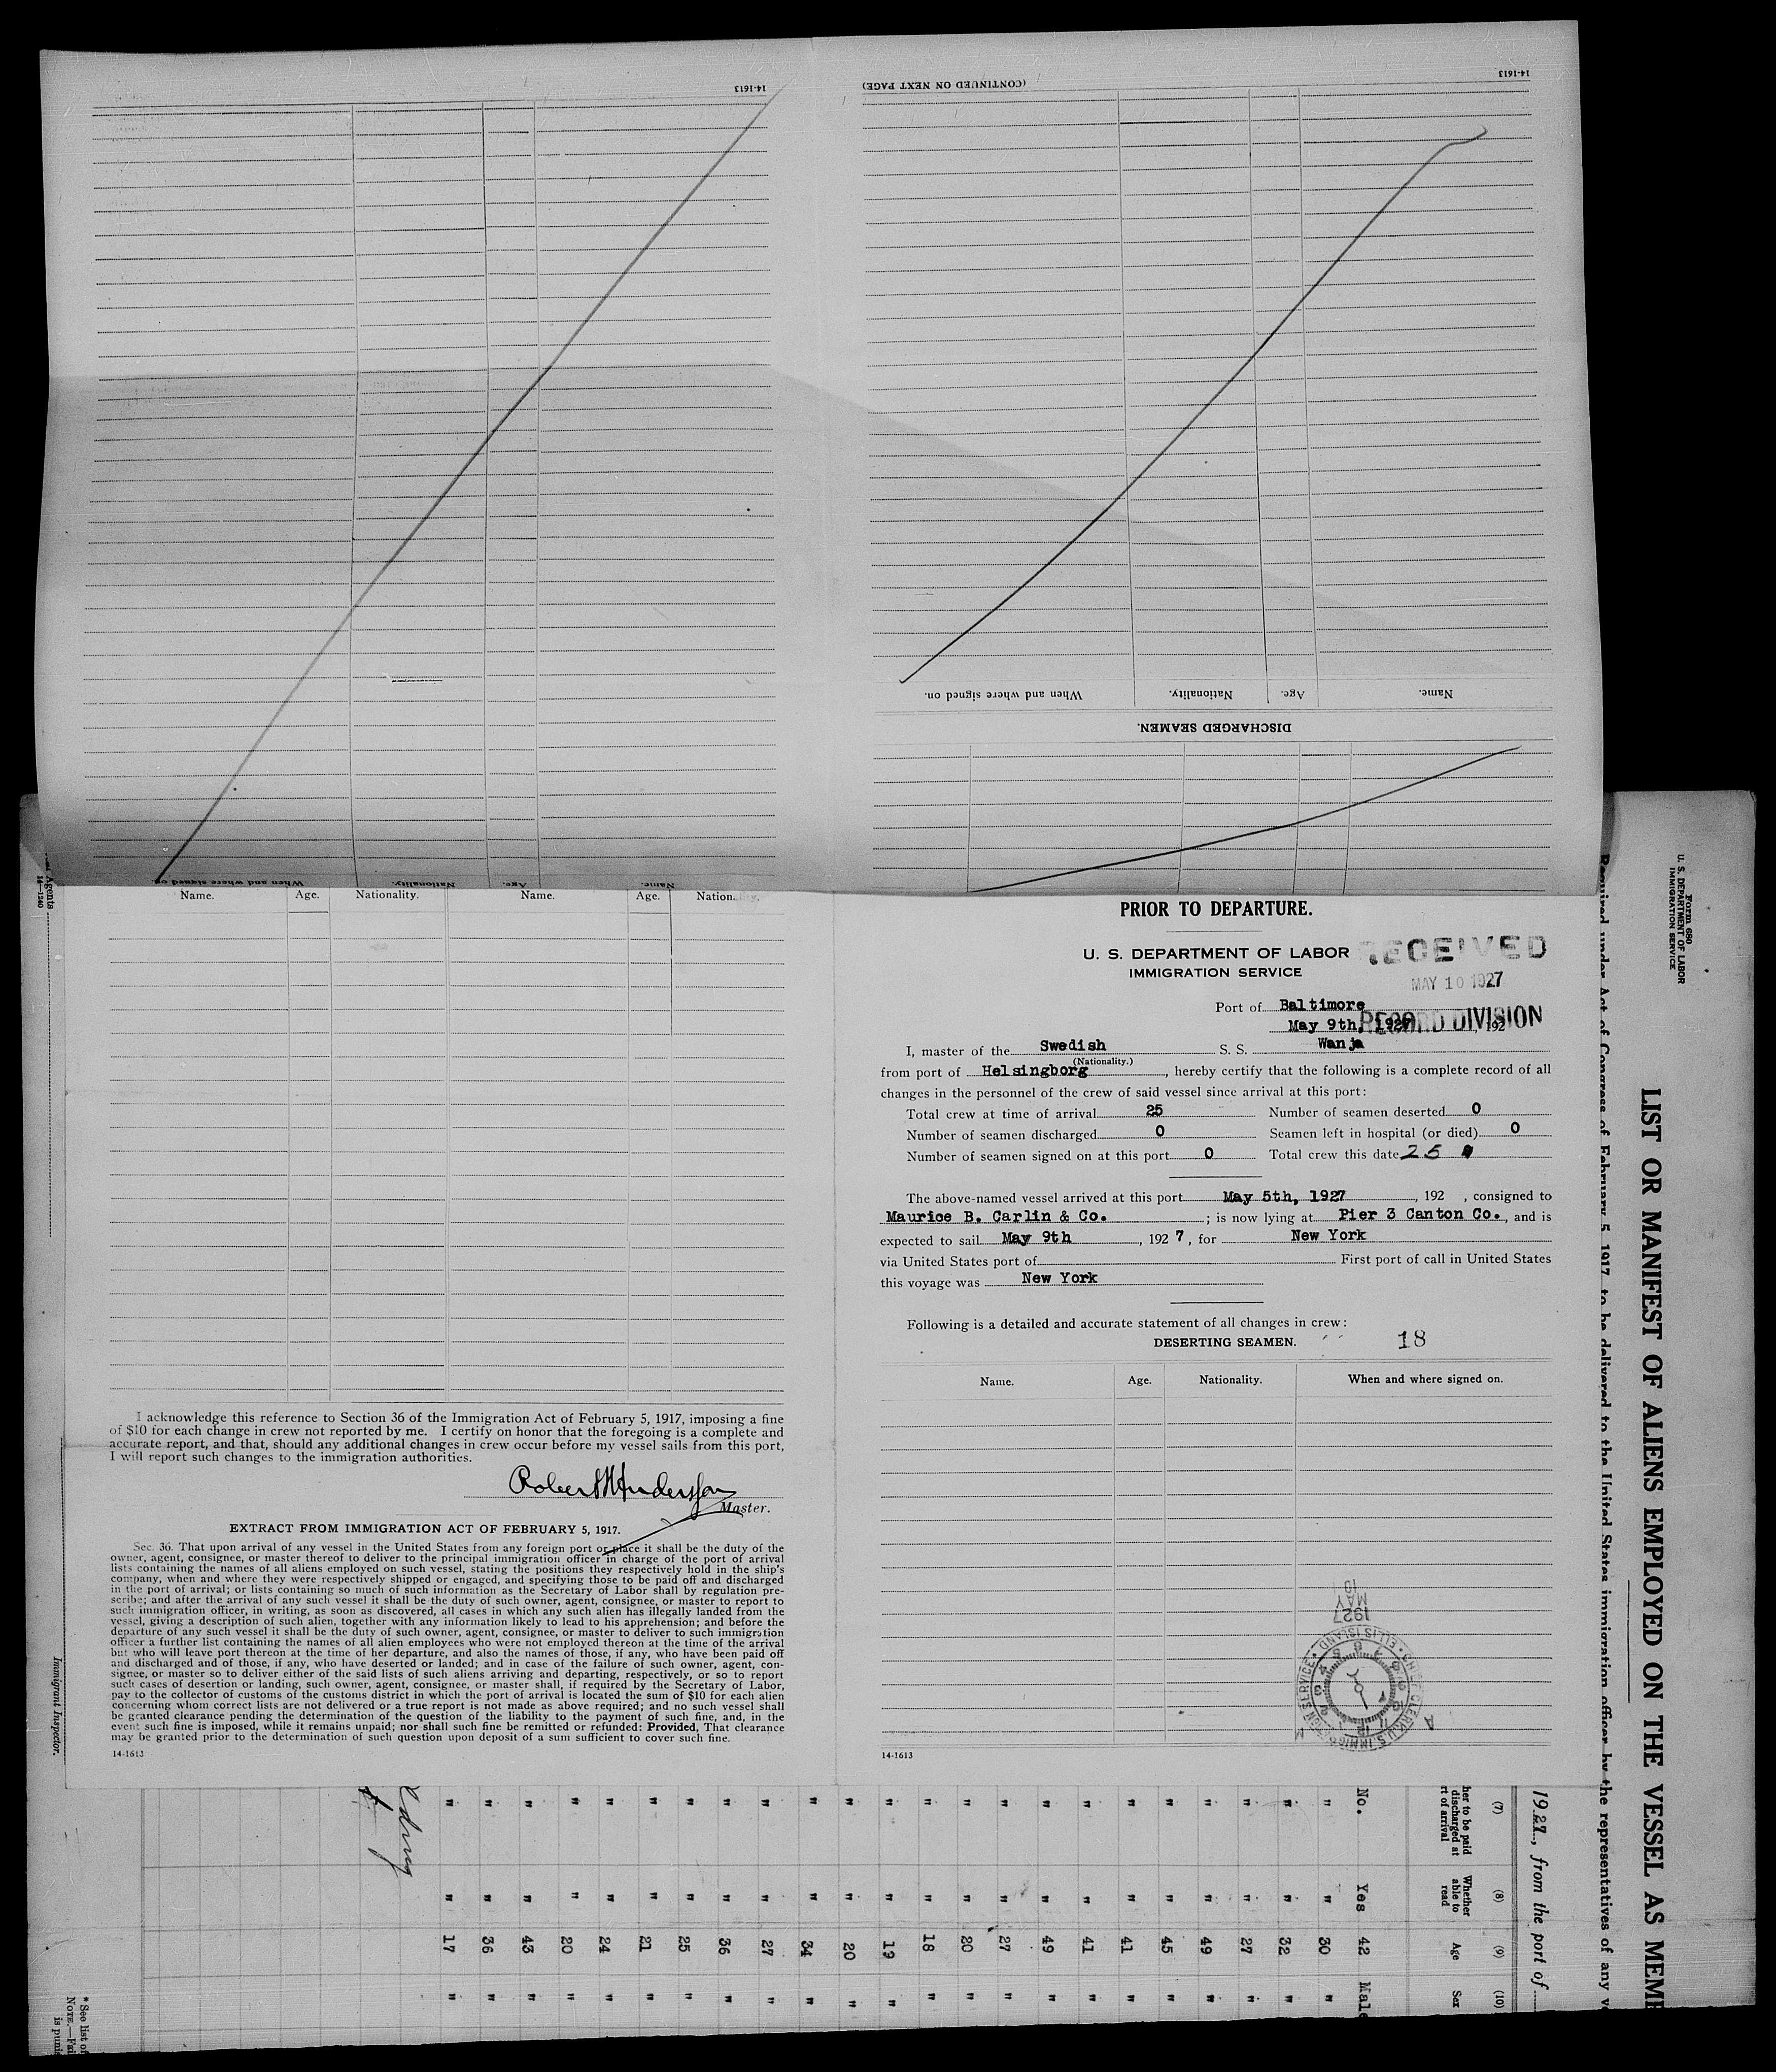 14-1613
(CONTINUED ON NEXT PAGE)
14-1613
When and where signed on.
Nationality.
Age.
Name.
DISCHARGED SEAMEN.
When and where signed on
Nationality.
Age.
Name.
Name. Age. Nationality. Name. Age. Nation
I acknowledge this reference to Section 36 of the Immigration Act of February 5, 1917, imposing a fine
of $10 for each change in crew not reported by me. I certify on honor that the foregoing is a complete and
accurate report, and that, should any additional changes in crew occur before my vessel sails from this port,
I will report such changes to the immigration authorities.
Robert Andersson
Master.
EXTRACT FROM IMMIGRATION ACT OF FEBRUARY 5, 1917.
Sec. 36. That upon arrival of any vessel in the United States from any foreign port or place it shall be the duty of the
owner, agent, consignee, or master thereof to deliver to the principal immigration officer in charge of the port of arrival
lists containing the names of all aliens employed on such vessel, stating the positions they respectively hold in the ship's
company, when and where they were respectively shipped or engaged, and specifying those to be paid off and discharged
in the port of arrival; or lists containing so much of such information as the Secretary of Labor shall by regulation pre-
scribe; and after the arrival of any such vessel it shall be the duty of such owner, agent, consignee, or master to report to
such immigration officer, in writing, as soon as discovered, all cases in which any such alien has illegally landed from the
vessel, giving a description of such alien, together with any information likely to lead to his apprehension; and before the
departure of any such vessel it shall be the duty of such owner, agent, consignee, or master to deliver to such immigration
officer a further list containing the names of all alien employees who were not employed thereon at the time of the arrival
but who will leave port thereon at the time of her departure, and also the names of those, if any, who have been paid off
and discharged and of those, if any, who have deserted or landed; and in case of the failure of such owner, agent, con-
signee, or master so to deliver either of the said lists of such aliens arriving and departing, respectively, or so to report
such cases of desertion or landing, such owner, agent, consignee, or master shall, if required by the Secretary of Labor,
pay to the collector of customs of the customs district in which the port of arrival is located the sum of $10 for each alien
concerning whom correct lists are not delivered or a true report is not made as above required; and no such vessel shall
be granted clearance pending the determination of the question of the liability to the payment of such fine, and, in the
event such fine is imposed, while it remains unpaid; nor shall such fine be remitted or refunded: Provided, That clearance
may be granted prior to the determination of such question upon deposit of a sum sufficient to cover such fine.
14-1613
PRIOR TO DEPARTURE.
U. S. DEPARTMENT OF LABOR
IMMIGRATION SERVICE
RECEIVED
MAY 10 1927
RECORD DIVISION
Port of Baltimore
May 9th, 1927, 192
I, master of the Swedish S. S. Wanja
(Nationality.)
from port of Helsingborg, hereby certify that the following is a complete record of all
changes in the personnel of the crew of said vessel since arrival at this port:
Total crew at time of arrival 25 Number of seamen deserted 0
Number of seamen discharged 0 Seamen left in hospital (or died) 0
Number of seamen signed on at this port 0 Total crew this date 25
The above-named vessel arrived at this port May 5th, 1927, 192 , consigned to
Maurice B. Carlin & Co. ; is now lying at Pier 3 Canton Co., and is
expected to sail May 9th, 192 7, for New York
via United States port of First port of call in United States
this voyage was New York
Following is a detailed and accurate statement of all changes in crew:
DESERTING SEAMEN. 18
Name. Age. Nationality. When and where signed on.
1927
MAY
10
CHIEF CLERK U.S. IMMIGRATION SERVICE • ELLIS ISLAND •
14-1613
Form 680
U. S. DEPARTMENT OF LABOR
IMMIGRATION SERVICE
LIST OR MANIFEST OF ALIENS EMPLOYED ON THE VESSEL AS MEM
Required under Act of Congress of February 5, 1917, to be delivered to the United States immigration officer by the representatives of any v
1927, from the port of
(7) (8) (9) (10)
her to be paid
discharged at
rt of arrival
Whether
able to
read
Age
Sex
No. Yes 42 Male
" " 30 "
" " 32 "
" " 27 "
" " 49 "
" " 45 "
" " 41 "
" " 41 "
" " 49 "
" " 27 "
" " 20 "
" " 18 "
" " 19 "
" " 20 "
" " 34 "
" " 27 "
" " 36 "
" " 25 "
" " 21 "
" " 24 "
" " 20 "
" " 43 "
" " 36 "
" " 17 "
Agents
14-1240
Immigrant Inspector.
* See list of
NOTE.—Fai
is punis